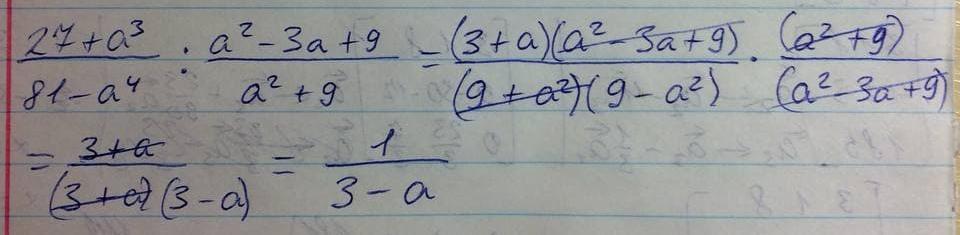 (27+a³)/(81-a⁴) : (a²-3a+9)/(a²+9) = ((3+a)(a²-3a+9))/((9+a²)(9-a²)) · (a²+9)/(a²-3a+9)
= (3+a)/((3+a)(3-a)) = 1/(3-a)